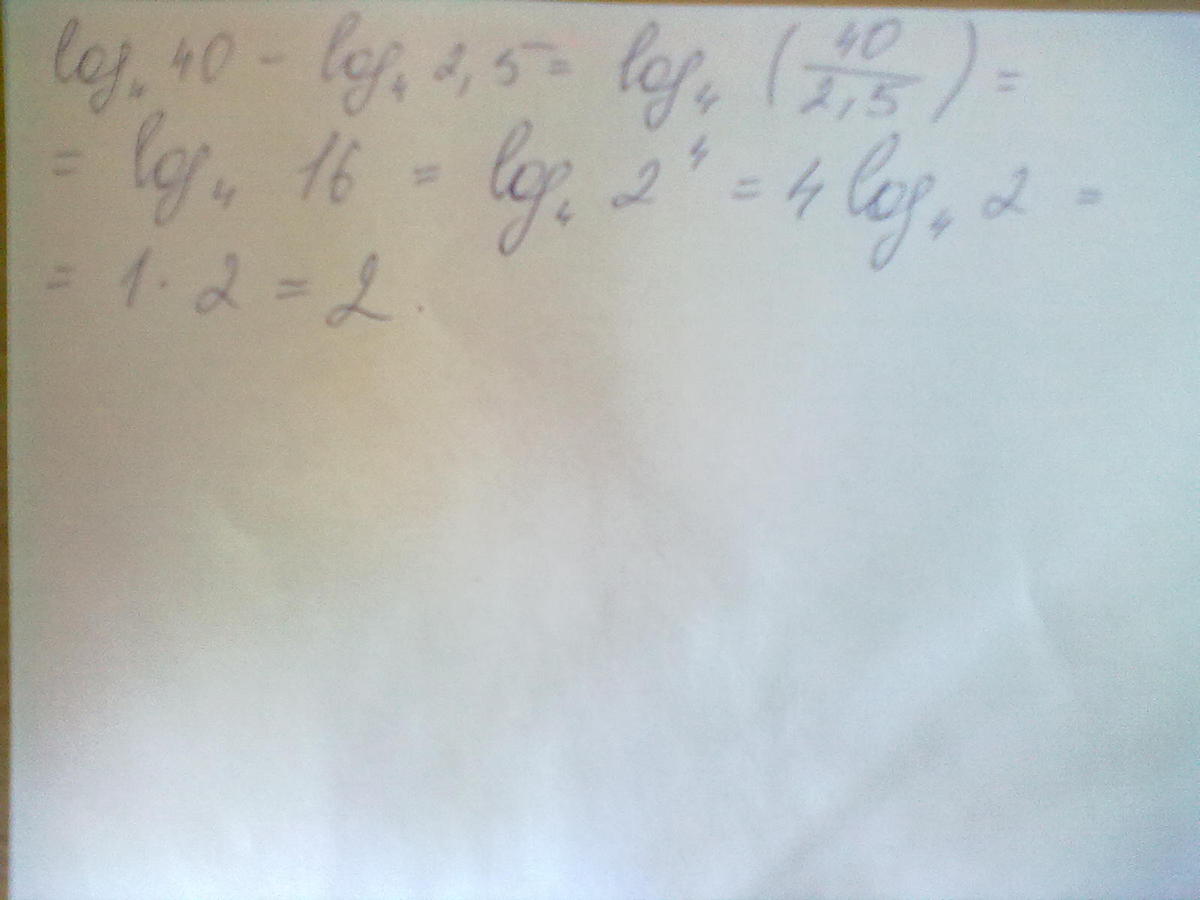 log₄ 40 - log₄ 2,5 = log₄ (40/2,5) =
= log₄ 16 = log₄ 2⁴ = 4 log₄ 2 =
= 1 · 2 = 2.